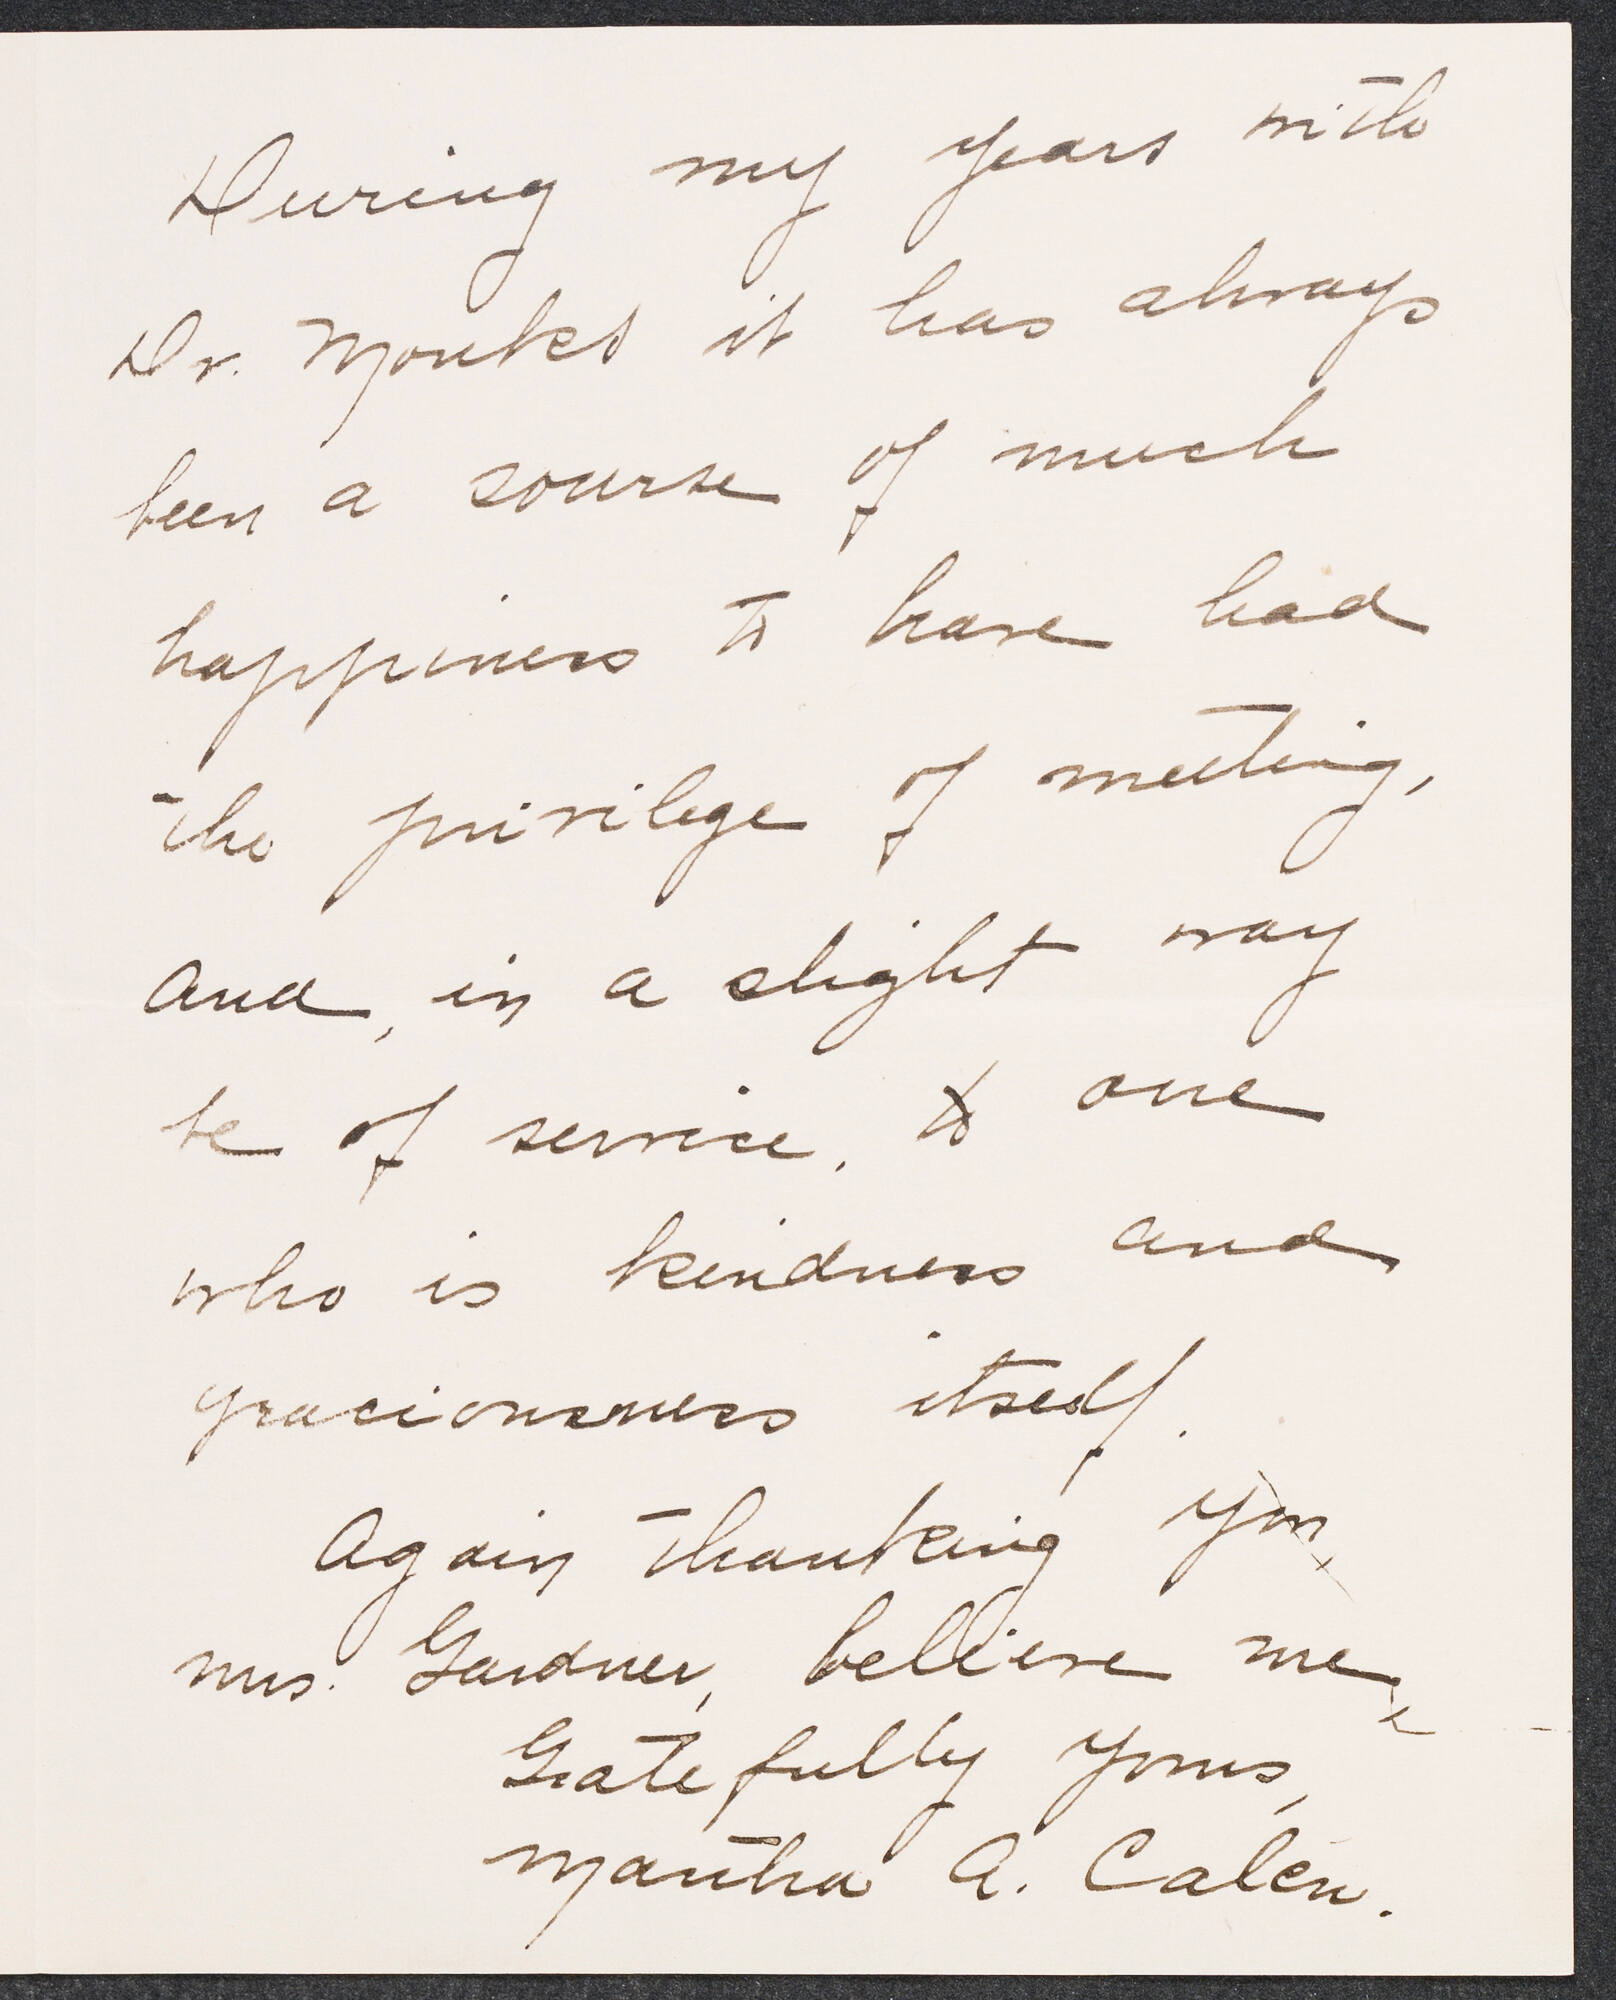 During my years with
Dr. Monks it has always
been a sourse of much
happiness to have had
the privilege of meeting,
and, in a slight way
be of service, to one
who is kindness and
graciousness itself.
Again thanking you,
Mrs. Gardner, believe me,
Gratefully yours,
Martha A. Calen.